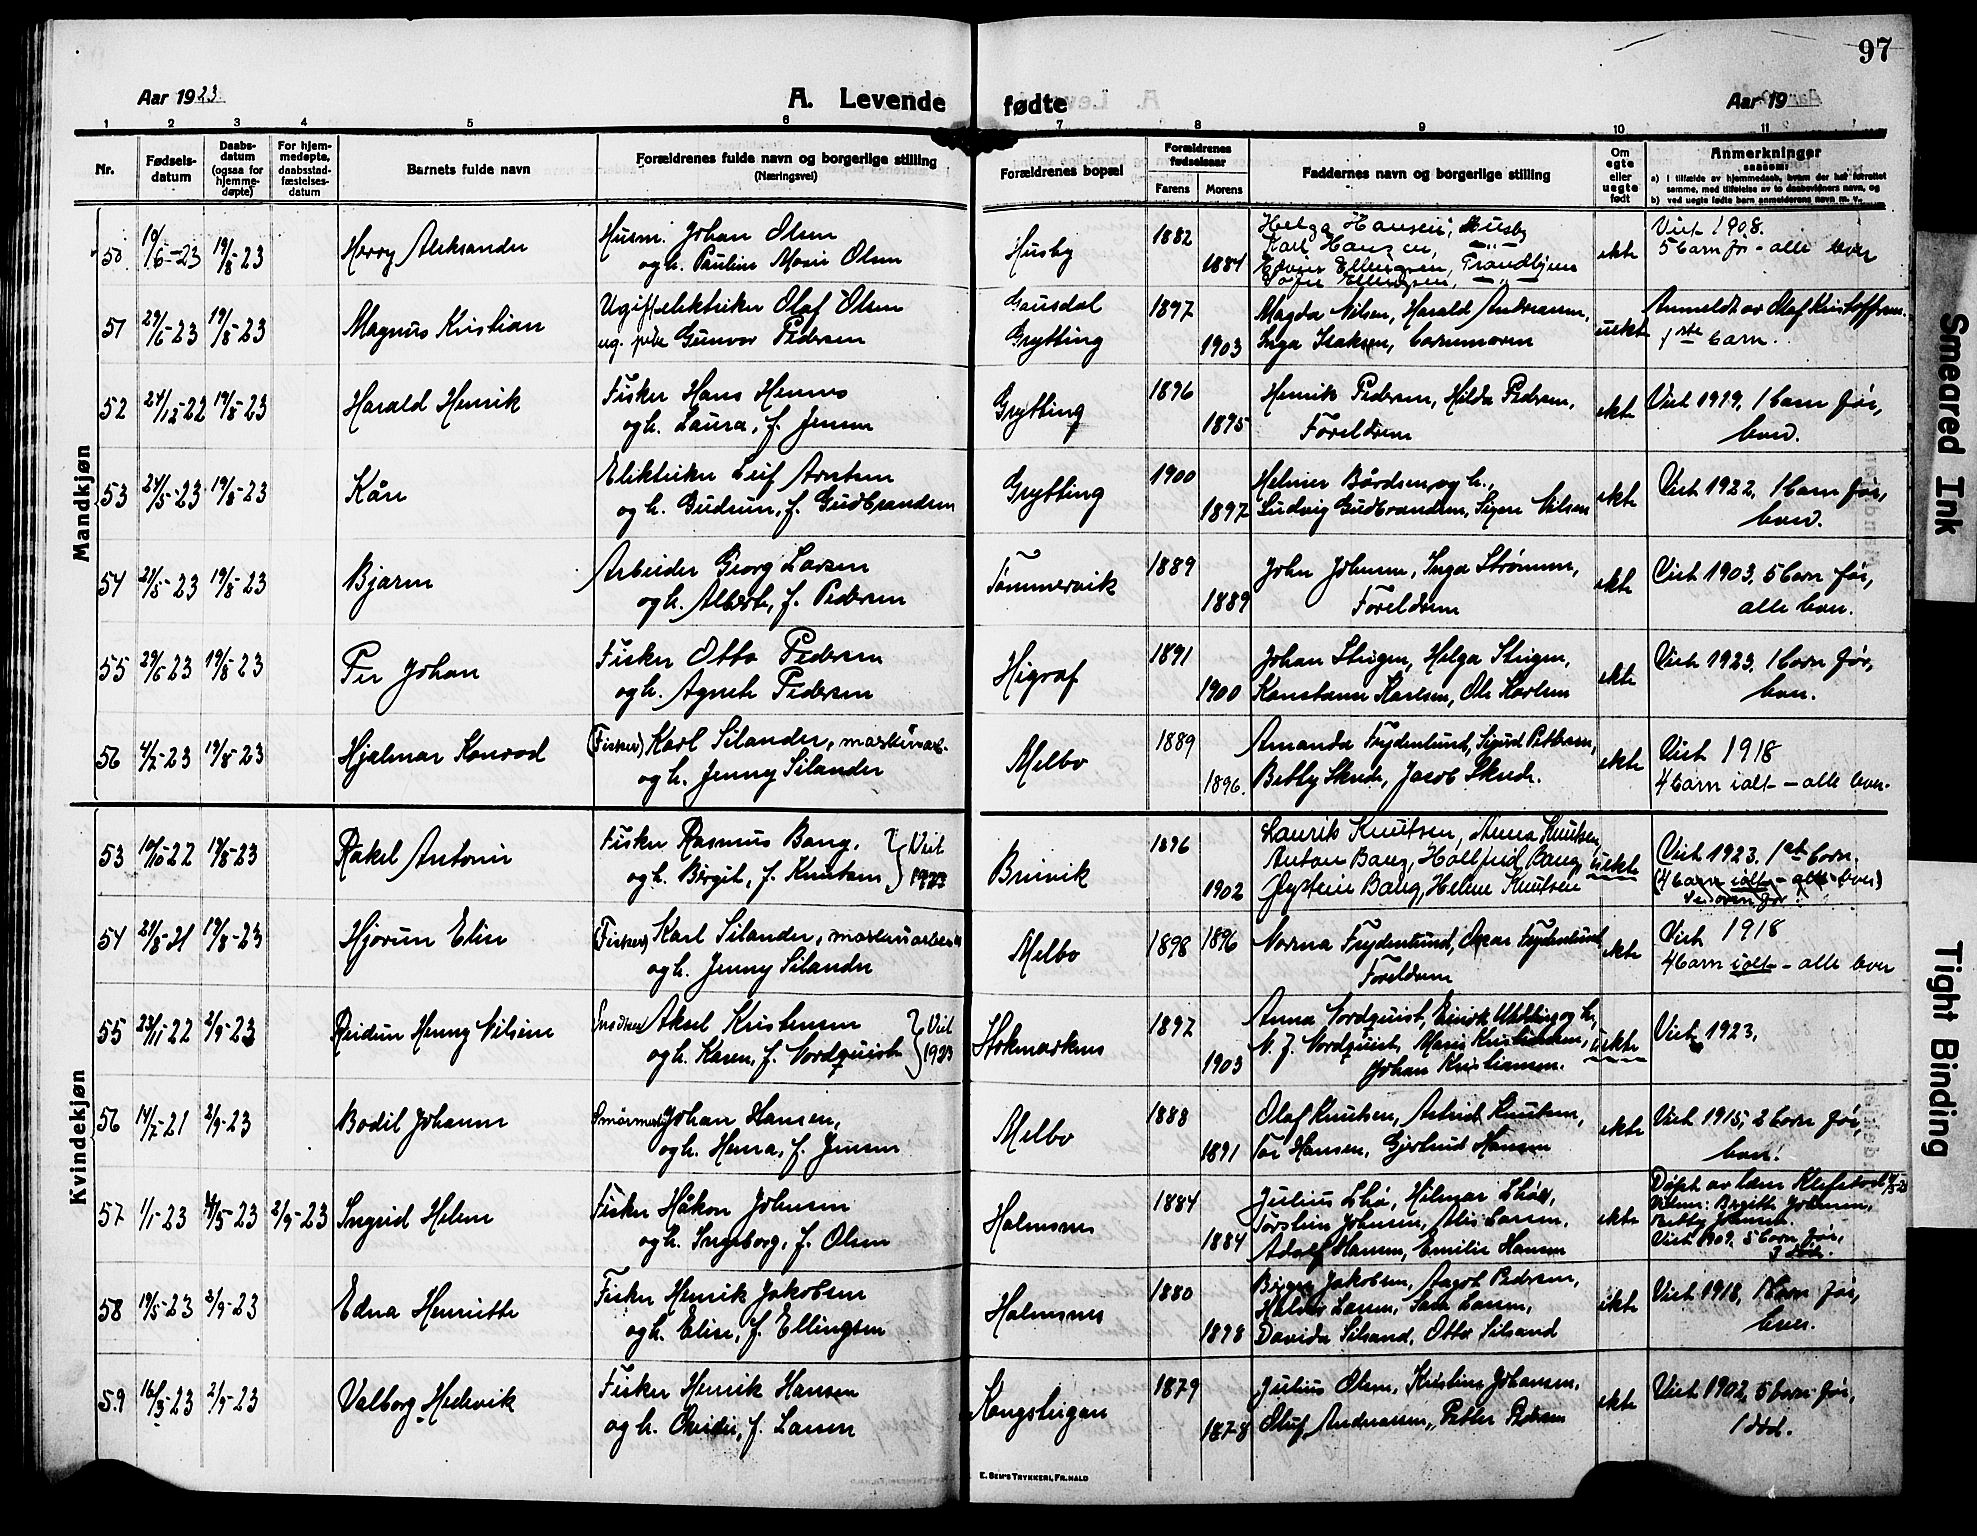 97
Aar 1923.
A. Levende
fødte
Aar 19
1 2 3 4 5 6 7 8 9 10 11
Nr.
Fødsels-
datum
Daabs-
datum
(ogsaa for
hjemme-
døpte)
For hjem-
medøpte,
daabsstad-
fæstelses-
datum
Barnets fulde navn
Forældrenes fulde navn og borgerlige stilling
(Næringsvei)
Forældrenes bopæl
Forældrenes
fødselsaar
Farens Morens
Faddernes navn og borgerlige stilling
Om
egte
eller
uegte
født
Anmerkninger
saasom:
a) i tilfælde av hjemmedaab, hvem der har forrettet
samme, med tilføielse av to daabsvidners navn, og
b) ved uegte fødte barn anmelderens navn m. v.
Mandkjøn
50 19/8-23 Harry Aleksander
Husm. Johan Olsen
og h. Pauline Marie Olsen
Husby 1882 1884
Helga Hansen, Husby
Karl Hansen,
Ellingsen, Trandbjeren
Ellingsen,
ekte
Viet 1908.
5 barn før - alle lever
51 29/6-23 19/8-23 Magnus Kristian
Ugift elektriker Olaf Olsen
ug. pike Gunvor Pedersen
Gausdal
Grytting
1897 1903
Magda Nilsen, Harald Andreassen,
Inga Isaksen, barnemoren
uekte
Anmeldt av Olaf Kristoffersen.
1ste barn.
52 24/12-22 19/8-23 Harald Henrik
Fisker Hans Hennes
og h. Laura, f. Jensen
Grytting 1896 1895
Henrik Pedersen, Hilda Pedersen,
Foreldrene
ekte
Viet 1919, 1 barn før,
lever.
53 24/5-23 19/8-23 Kåre
Elektriker Leif Arntsen
og h. Gudrun, f. Gudbrandsen
Grytting 1900 1897
Helmer Bårdsen og h.,
Ludvig Gudbrandsen, Signe Nilsen
ekte
Viet 1922, 1 barn før,
lever.
54 21/5-23 19/8-23 Bjarne
Arbeider Georg Larsen
og h. Alberte, f. Pedersen
Tømmervik 1889 1889
John Johnsen, Inga Strømmen,
Foreldrene
ekte
Viet 1903, 5 barn før,
alle lever.
55 29/6-23 19/8-23 Per Johan
Fisker Otto Pedersen
og h. Agnete Pedersen
Higraf 1891 1900
Johan Steigen, Helga Steigen,
Konstanse Karlsen, Ole Karlsen
ekte
Viet 1923, 1 barn før,
lever.
56 4/7-23 19/8-23 Hjalmar Konrad
(Fisker) Karl Silander, maskinarb.
og h. Jenny Silander
Melbo 1889 1896.
Amanda Frydenlund, Sigurd Pettersen,
Betty Skrede, Jacob Skrede.
ekte
Viet 1918
4 barn ialt - alle lever.
Kvindekjøn
53 10/10-22 19/8-23 Rakel Antonie
Fisker Rasmus Bang,
og h. Birgit, f. Knutsen
Viet
1923
Breivik 1896 1902
Laurits Knutsen, Anna Knutsen,
Anton Bang, Hallfrid Bang,
Øystein Bang, Helene Knutsen
uekte
Viet 1923. 1ste barn.
(4 barn ialt - alle lever)
54 21/8-21 19/8-23 Hjørun Elise
(Fisker) Karl Silander, maskinarbeider
og h. Jenny Silander
Melbo 1898 1896
Norma Frydenlund, Oscar Frydenlund,
Foreldrene
ekte
Viet 1918
4 barn ialt - alle lever
55 23/11-22 2/9-23 Reidun Henny Nilsine
Aksel Kristensen
og h. Karen, f. Nordquist
Viet
1923
Stokmarknes 1897 1903
Anna Nordquist,
N. J. Nordquist, Marie Kristiansen,
Johan Kristiansen.
uekte
Viet 1923.
56 14/7-21 2/9-23 Bodil Johanne
Johan Hansen,
og h. Henra, f. Jensen
Melbo 1888 1891
Olaf Knutsen, Astrid Knutsen,
Tor Hansen, Gjertrud Hansen
ekte
Viet 1915, 2 barn før,
lever.
57 1/1-23 2/9-23 Ingrid Helene
Fisker Håkon Johnsen
og h. Ingeborg, f. Olsen
Holmsnes 1884 1884
Julius Lhø, Hilmar Lhø,
Torstein Johnsen, Alis Larsen,
Adolf Hansen, Emilie Hansen
ekte
Døpt av lærer
Vitner: Birgith Johnsen,
Betty Johnsen.
Viet 1909, 5 barn før,
3 døde.
58 19/5-23 2/9-23 Edna Henriette
Fisker Henrik Jakobsen
og h. Elise, f. Ellingsen
Holmsnes 1880 1898
Birger Jakobsen, Aagot Pedersen,
Halvor Larsen, Sara Larsen,
Davida Silsand, Otto Silsand
ekte
Viet 1918, 1 barn før,
lever.
59 16/3-23 2/9-23 Valborg Hedevik
Fisker Henrik Hansen
og h. Ovidie, f. Larsen
Kongsteigan 1879 1878
Julius Olsen, Kristine Johansen,
Oluf Andreassen, Petter Pedersen
ekte
Viet 1902, 5 barn før,
1 død.
E. SEM'S TRYKKERI, FR.HALD
Smeared Ink
Tight Binding